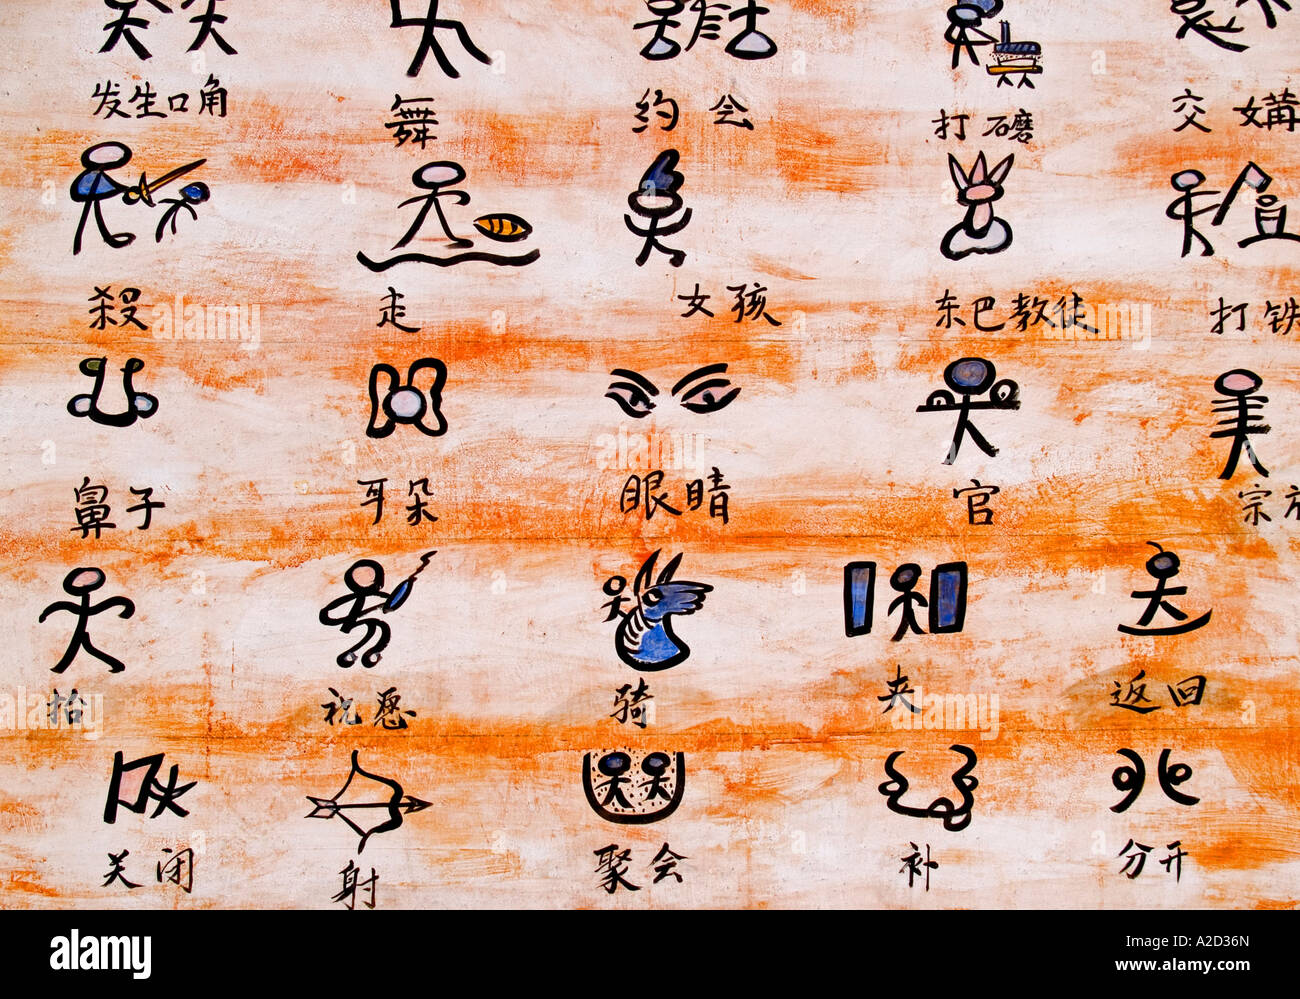 发生口角 舞 约会 打磨 交媾
殺 走 女孩 东巴教徒 打铁
鼻子 耳朵 眼睛 官 宗
抬 祝愿 骑 夹 返回
关闭 射 聚会 补 分开
alamy
alamy
Image ID: A2D36N
www.alamy.com